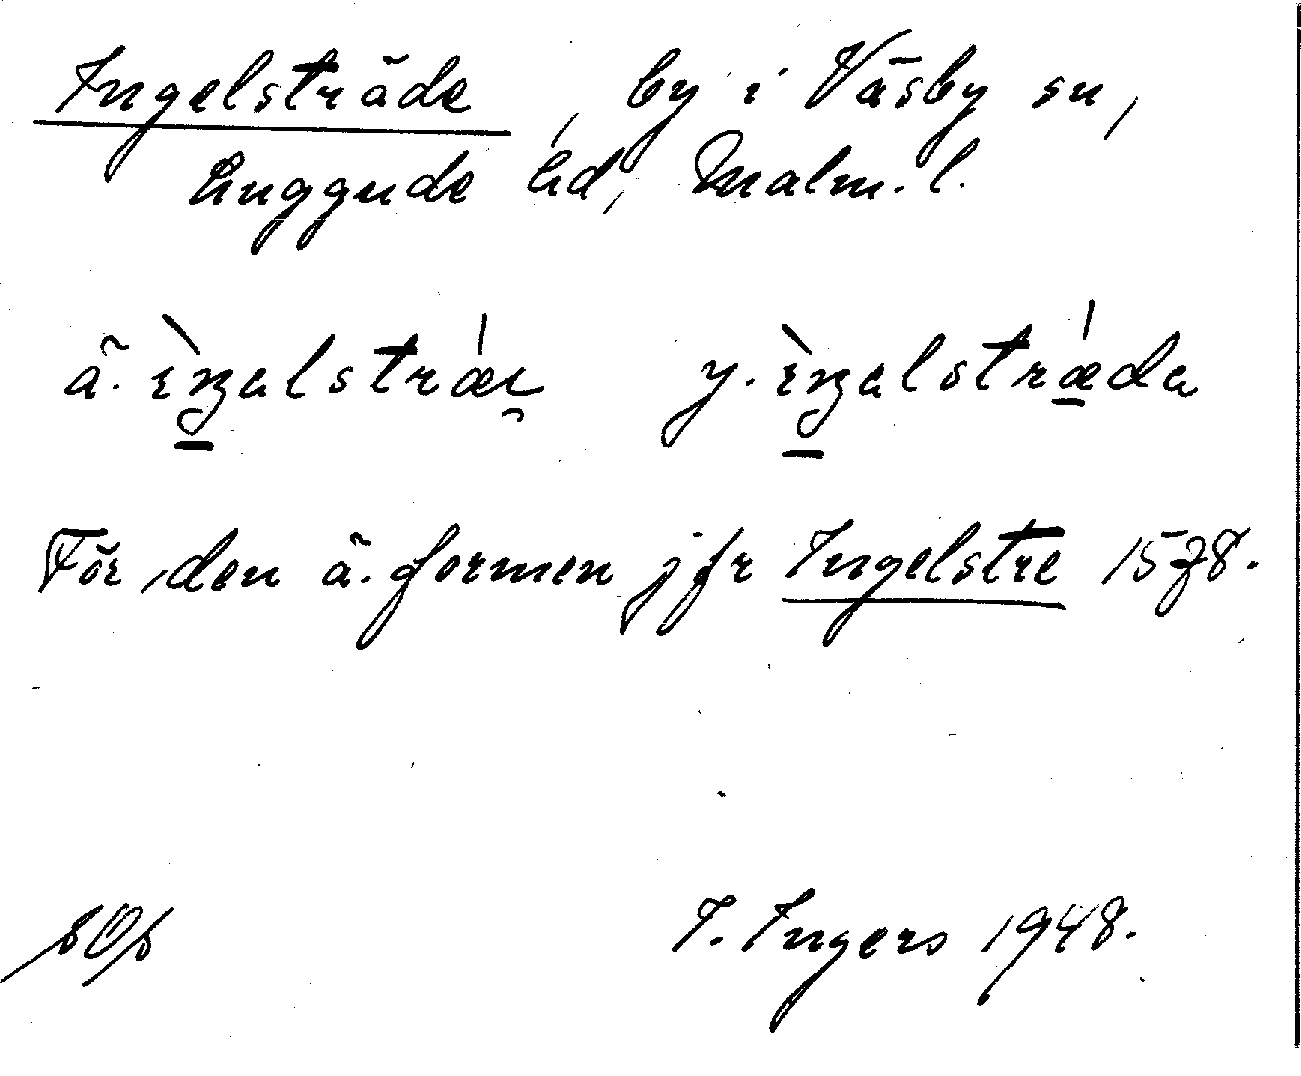 Ingelsträde, by i Väsby sn,
Luggude hd, Malm. l.
ä. ìŋəlstrǽi̯ y. ìŋəlstrǽda
För den ä. formen jfr Ingelstre 1578.
I. Ingers 1948.